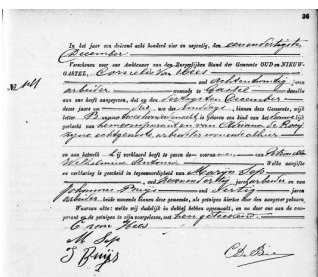 36
In het jaar een duizend acht honderd vier en negentig, den een en dertigsten
December
Verschenen voor ons Ambtenaar van den Burgerlijken Stand der Gemeente OUD en NIEUW-
GASTEL, Cornelis van Hees
oud achtendertig jaren
arbeider wonende te Gastel dewelke
aan ons heeft aangegeven, dat op den dertigsten December
dezes jaars ten ure des namiddags, binnen deze Gemeente, wijk
letter B, nummer is geboren een kind van het vrouwelijk
geslacht van hem comparant en van Adriana de Rooij
zijne echtgenoote, arbeidster wonende alhier
en aan hetwelk hij verklaard heeft te geven de voornamen van Petronella
Wilhelmina Antonia. Welke aangifte
en verklaring is geschied in tegenwoordigheid van Marijn Sep
oud jaren arbeider en van
Johannes Buijs oud veertig jaren
arbeider, beide wonende binnen deze gemeente, als getuigen hiertoe door den aangever gekozen.
Waarvan akte: welke wij dadelijk in dubbel hebben opgemaakt, en na door ons aan de com-
parant en de getuigen te zijn voorgelezen, met hen geteekend.
C van Hees
M Sep
J Buijs